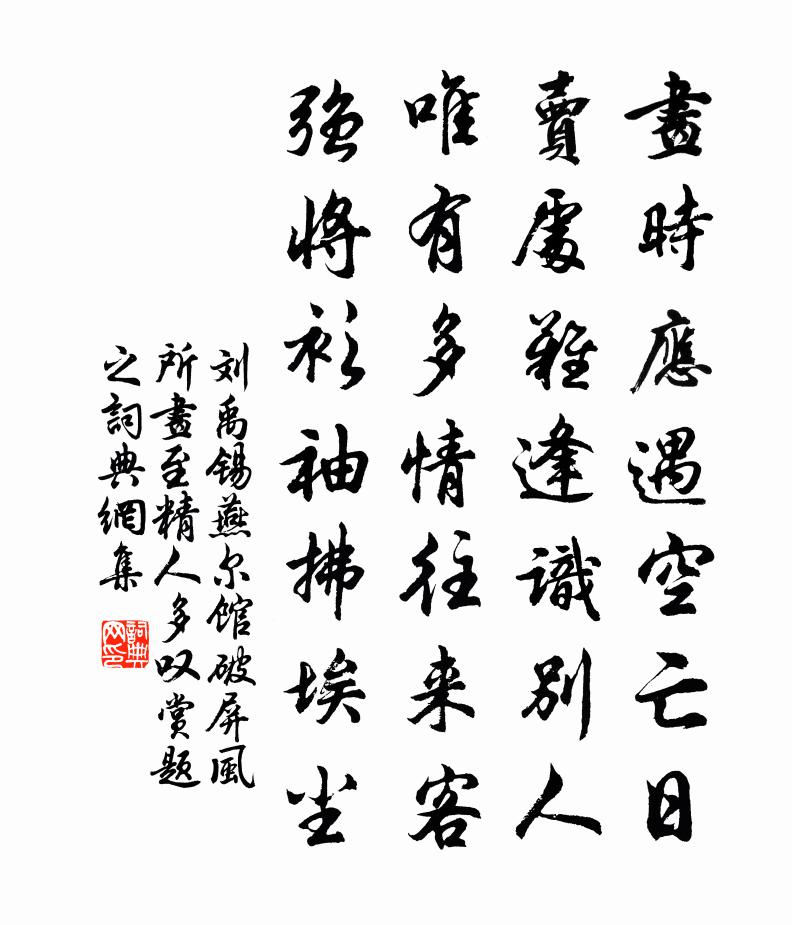 畫時應遇空亡日
賣處難逢識別人
唯有多情往来客
強將衫袖拂埃尘
刘禹锡燕尔馆破屏風
所畫至精人多叹賞题
之詞典網集
詞典網印